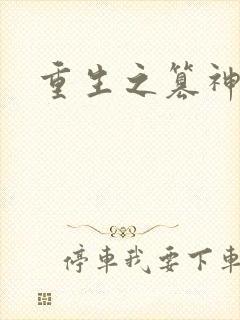 重生之篡神
停車我要下車